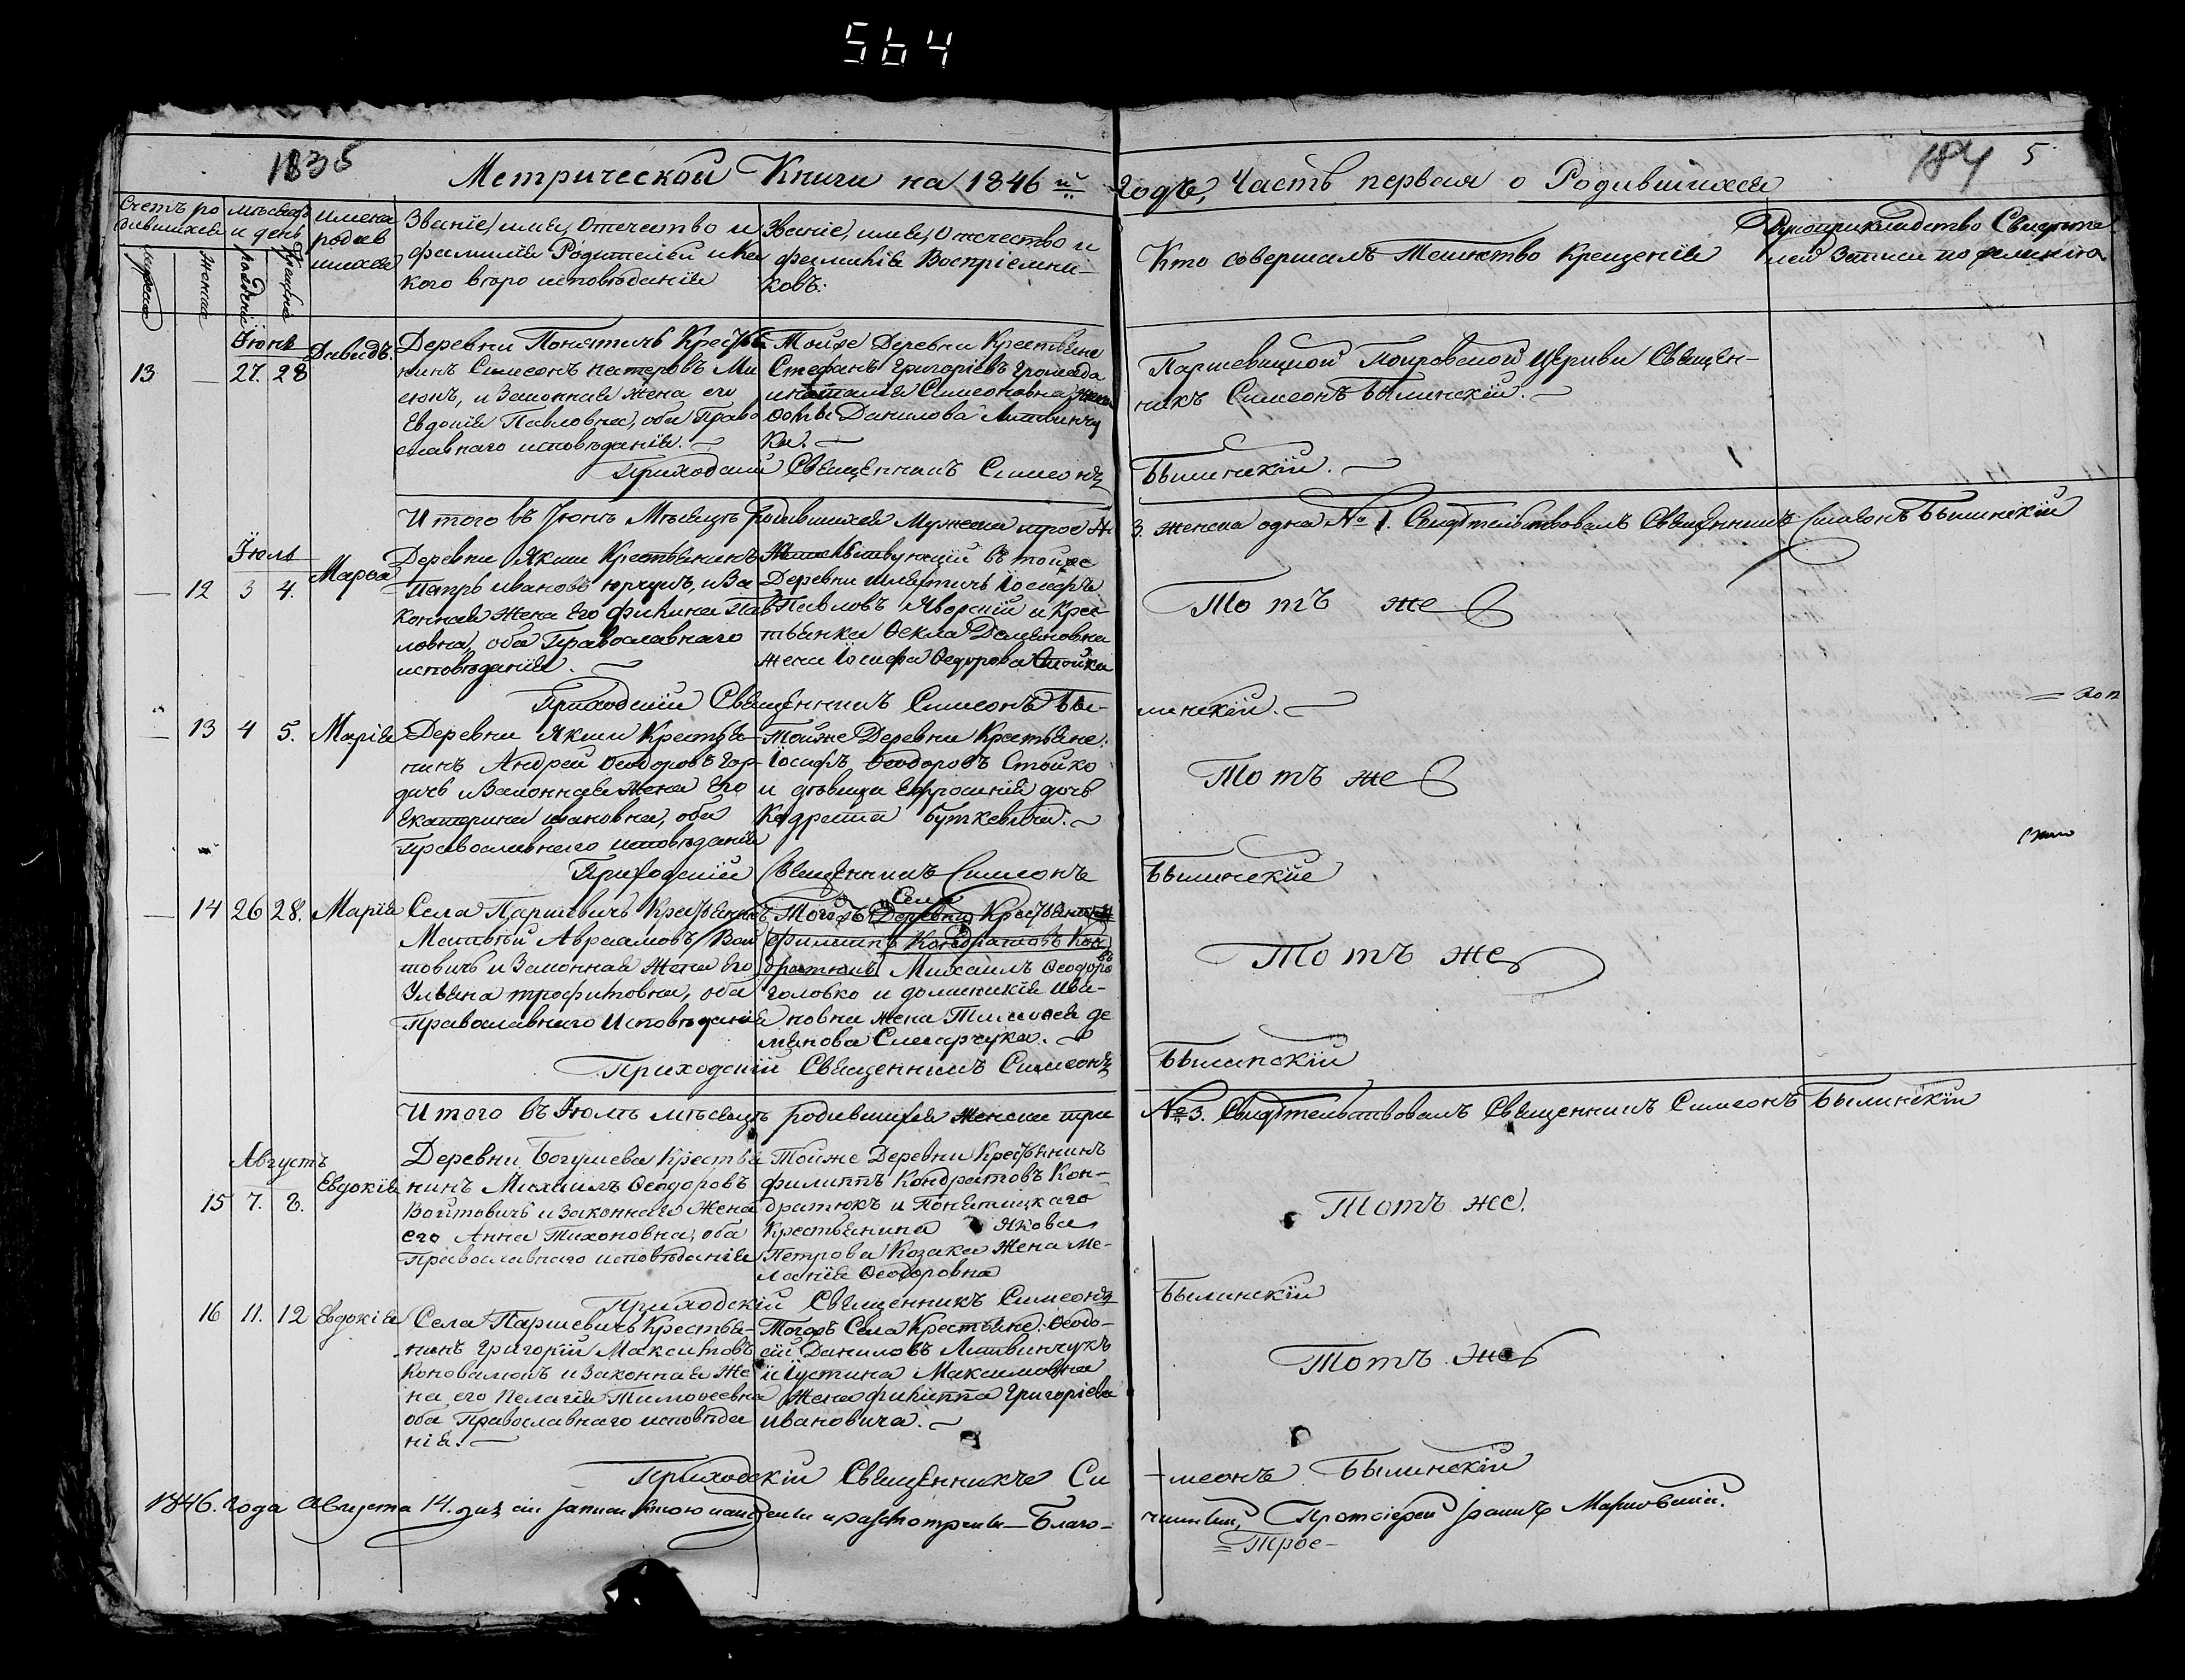 564
1835
184 5
Метрической Книги на 1846й Годъ, Часть первая о Родившихся
Счетъ ро
дившихся
мѣсяцъ
и день
имена
родив
шихся
Званіе, имя, Отечество и
фамилія Родителей и ка
кого вѣро исповѣданія
Званіе, имя, Отчество и
фамилія Воспріемни-
ковъ:
Кто совершалъ Таинство Крещенія
Рукоприкладство Свидѣте
лей Записи по желанію
Женска
рожденія
крещенія
Іюнь
13 — 27. 28
Давидъ.
Деревни Понятичъ Крестья
нинъ Симеонъ Ми
сюкъ, и Законная Жена его
Евдокія Павловна, оба Право
славнаго исповѣданія.
Тойже Деревни Крестьяне
Стефанъ Григоріевъ Громада
и Симеоновна Жена
Данилова Литвинчу
ка.
Паршевицкой Покровской Церкви Священ-
никъ Симеонъ Былинскій.
Приходскій Священникъ Симеонъ
Былинскій.
Итого въ Іюнѣ Мѣсяцѣ родившихся Мужеска трое №
3. женска одна № 1. Свидѣтельствовалъ Священникъ Симеонъ Былинскій
Іюль
— 12 3 4.
Марѳа
Деревни Якши Крестьянинъ
Петръ Ивановъ юрчукъ, и За
конная Жена Его Филина Пав
ловна, оба Православнаго
исповѣданія.
въ тойже
Деревни Іосифъ
Павловъ Яворскій и Крес
тьянка Ѳекла Демяновна
жена Іосифа Ѳедорова Стойка
Тотъ же
Приходскій Священникъ Симеонъ Бы-
линскій.
— 13 4 5.
Марія
Деревни Якши Крестья-
нинъ Андрей Ѳеодоровъ Гор
дичъ и Законная Жена Его
Екатерина Ивановна, оба
Православнаго исповѣданія
Тойже Деревни Крестьяне:
Іосифъ Ѳеодоровъ Стойко
и дѣвица Ефросинія дочь
Кодрата Буткевича.
Тотъ же
Приходскій Священникъ Симеонъ
Былинскій
— 14 26 28.
Марія
Села Паршевичъ Крестьянинъ
Матвѣй Авраамовъ Вой
товичъ и Законная Жена Его
Ульяна Трофимовна, оба
Православнаго Исповѣданія
Села
Тогожъ Деревни Крестьяни
Филиппъ Кондратовъ Кон
дратюкъ Михаилъ Ѳеодоровъ
Головко и Доминикія Ива-
новна жена Тимоѳея Де
мянова Слесарчука.
Тотъ же
Приходскій Священникъ Симеонъ
Былинскій
Итого въ Іюлѣ мѣсяцѣ родившихся Женска три
№ 3. Свидѣтельствовалъ Священникъ Симеонъ Былинскій
Августъ
15 7. 8.
Евдокія
Деревни Богушева Крестья
нинъ Михаилъ Ѳеодоровъ
Войтовичъ и Законная Жена
его Анна Тихоновна, оба
Православнаго исповѣданія
Тойже Деревни Крестьянинъ
Филиппъ Кондратовъ Кон-
дратюкъ и Понятицкаго
Крестьянина Якова
Петрова Козака Жена Ме-
ланія Ѳеодоровна
Тотъ же.
Приходскій Священникъ Симеонъ
Былинскій
16 11. 12
Евдокія
Села Паршевичъ Крестья-
нинъ Григорій Максимовъ
Коновалюкъ и Законная Же
на его Пелагія Тимоѳеевна
оба Православнаго исповѣда
нія.
Тогожъ Села Крестьяне: Ѳеодо-
сій Даниловъ Литвинчукъ
и Іустина Максимовна
Жена Филиппа Григоріева
Ивановича.
Тотъ же
Приходскій Священникъ Си
меонъ Былинскій
1846. Года Августа 14. дня сіи записи мною и разсмотрены — Благо-
чинный, Протоіерей
Трое-